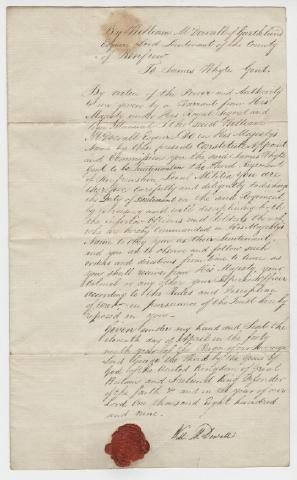 By William McDowall of Garthland
Esquire Lord Lieutenant of the County
of Renfrew
To James Whyte Gent.
By virtue of the Power and Authority
to me given by a Warrant from His
Majesty under His Royal Signet and
Sign Manual I the said William
McDowall Esquire Do in His Majesty's
Name by these presents Constitute Appoint
and Commission you the said James Whyte
Gent to be Lieutenant in the Third Regiment
of Renfrewshire Local Militia You are
therefore carefully and diligently to discharge
the Duty of Lieutenant in the said Regiment
by exercising and well disciplining both
the inferior Officers and Soldiers thereof
who are hereby commanded in His Majesty's
Name to obey you as their Lieutenant
and you are to observe and follow such
orders and directions from time to time as
you shall receive from His Majesty your
Colonel or any other your Superior Officer
according to the Rules and Discipline
of War in pursuance of the Trust hereby
reposed in you
Given under my hand and Seal the
eleventh day of April in the forty
ninth year of the Reign of our Sovereign
Lord George the Third by the Grace of
God of the United Kingdom of Great
Britain and Ireland King Defender
of the faith & and in the year of our
Lord One thousand Eight hundred
and nine.
Will McDowall